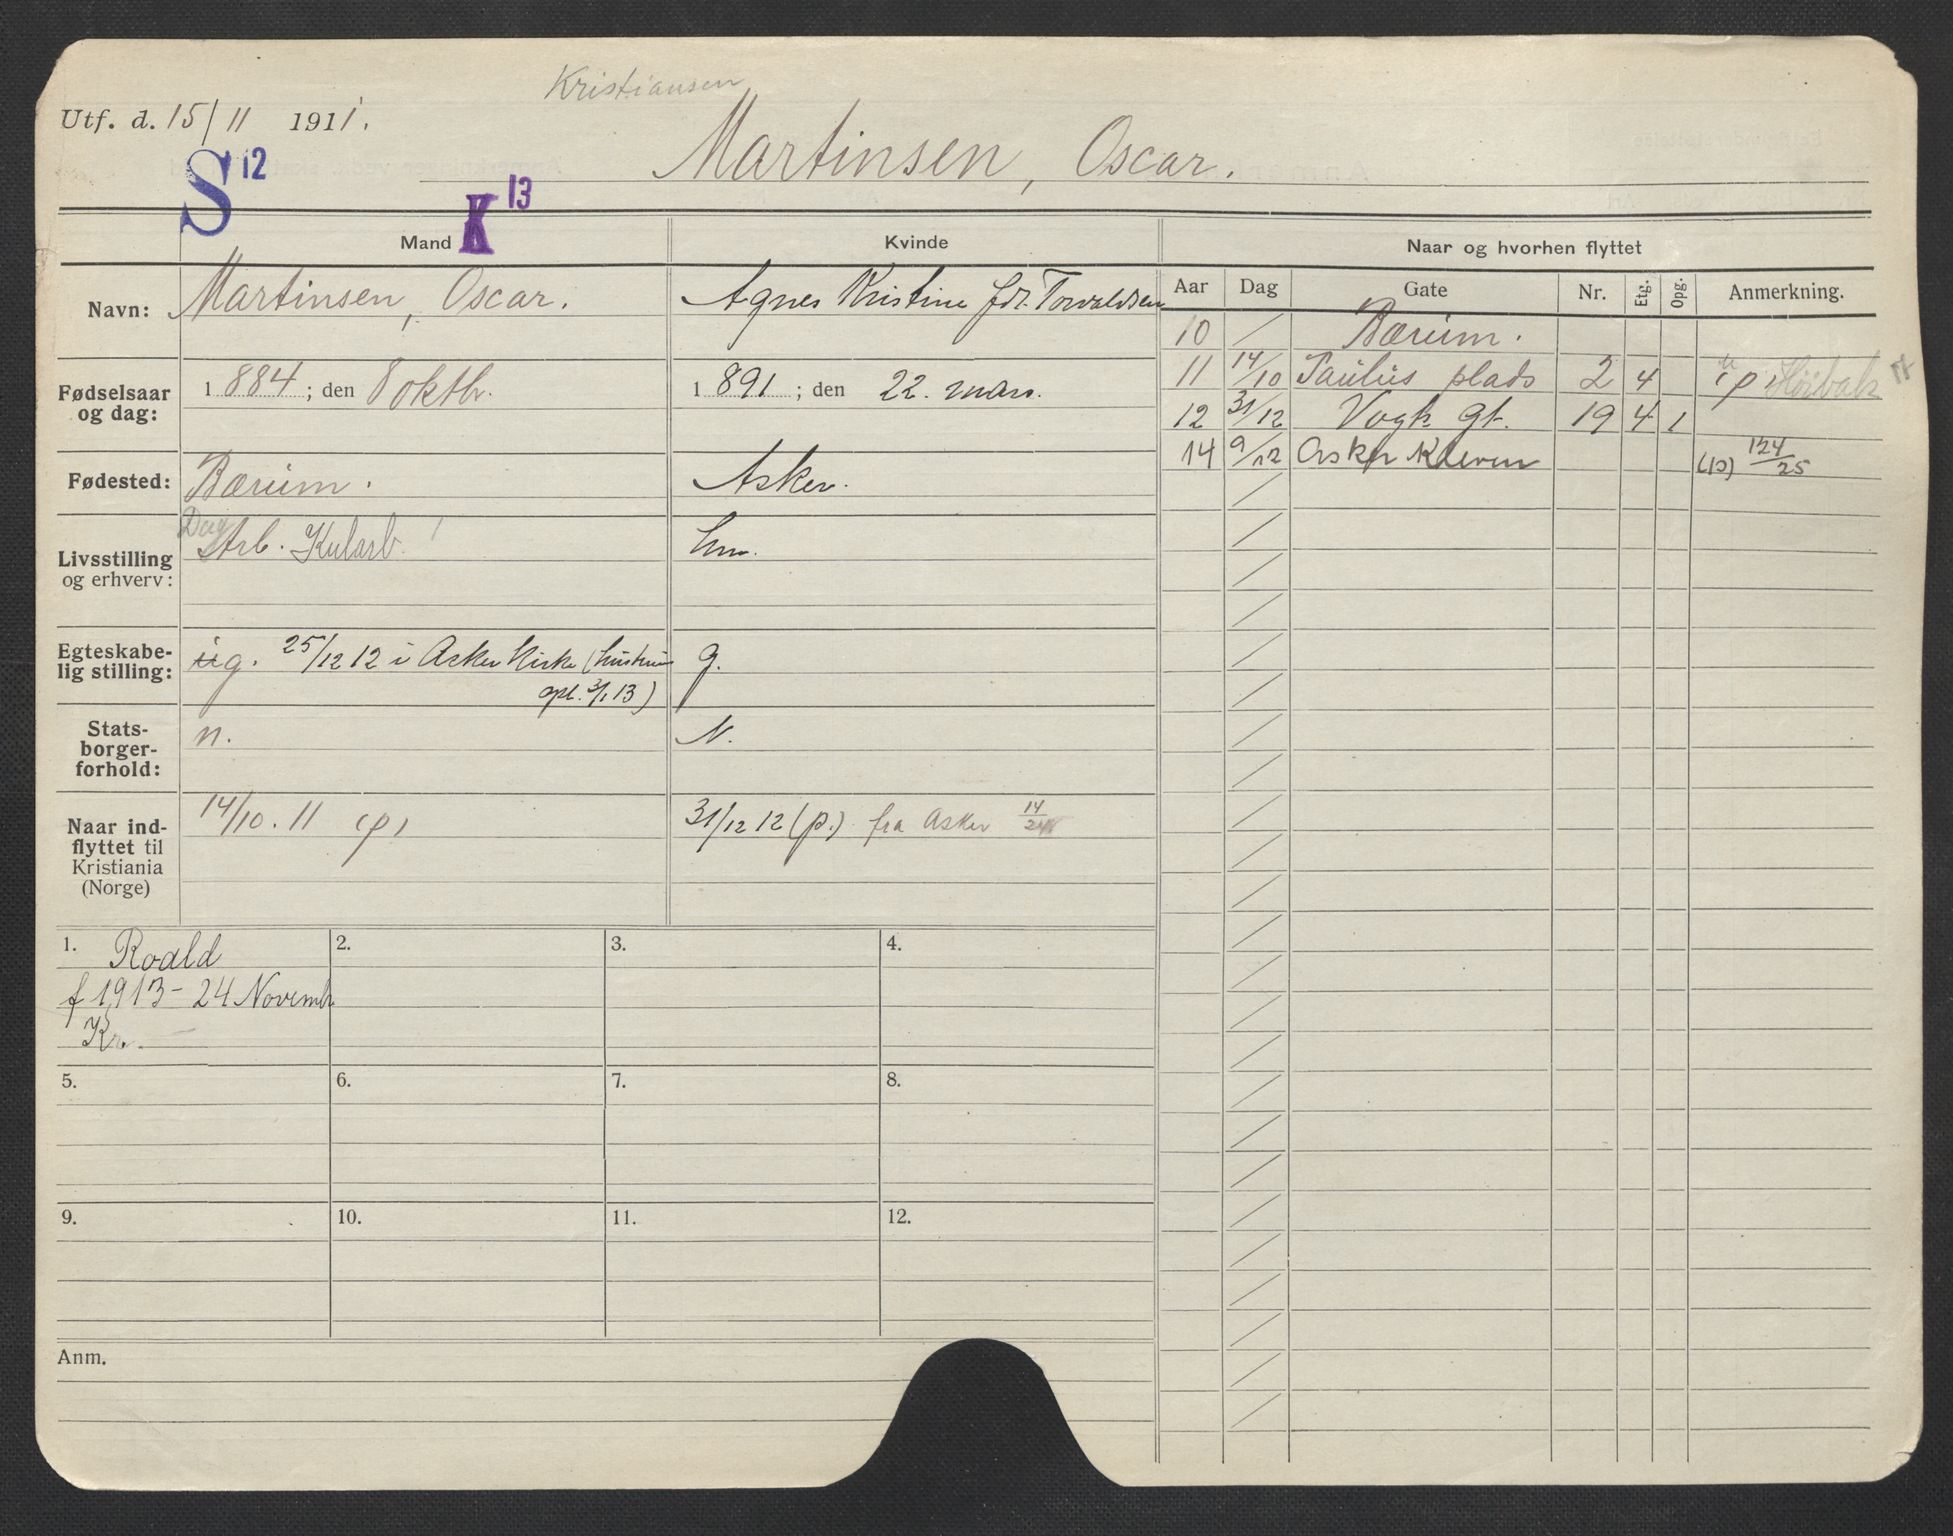 Kristiansen
Utf. d. 15/11 1911.
Martinsen, Oscar.
S 12
K 13
Mand
Kvinde
Naar og hvorhen flyttet
Navn: Martinsen, Oscar.
Agnes Kristine fdt. Torvaldsen
Fødselsaar og dag: 1884; den 8 oktbr.
1891; den 22. mars.
Fødested: Bærum.
Asker.
Livsstilling og erhverv: Dag Arb. Kularb.
hm.
Egteskabelig stilling: ug. 25/12 12 i Asker kirke (hustruen
opl. 3/1 13)
g.
Statsborgerforhold: n.
N.
Naar indflyttet til Kristiania (Norge) 14/10. 11 (p)
31/12 12 (p.) fra Asker 14/
Aar Dag Gate Nr. Etg. Opg. Anmerkning.
10 / Bærum.
11 14/10 Paulus plads 2 4 (p) Høibak
12 31/12 Vogts gt. 19 4 1
14 9/12 Asker Kleven (p) 124/25
1. Roald
f 1913 - 24 Novembr
Kr.
2.
3.
4.
5.
6.
7.
8.
9.
10.
11.
12.
Anm.